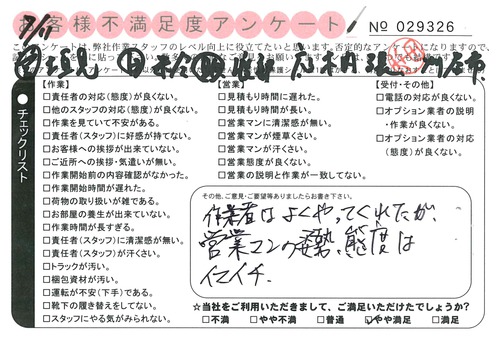 お客様不満足度アンケート
No 029326
このアンケートは、弊社作業スタッフのレベル向上に役立てたいと思います。否定的なアンケートになりますので、
8/17
チェックリスト
【作業】
□責任者の対応（態度）が良くない。
□他のスタッフの対応（態度）が良くない。
□作業を見ていて不安がある。
□責任者（スタッフ）に好感が持てない。
□お客様への挨拶が出来ていない。
□ご近所への挨拶・気遣いが無い。
□作業開始前の内容確認がなかった。
□作業開始時間が遅れた。
□荷物の取り扱いが雑である。
□お部屋の養生が出来ていない。
□作業時間が長すぎる。
□責任者（スタッフ）に清潔感が無い。
□責任者（スタッフ）が汗くさい。
□トラックが汚い。
□梱包資材が汚い。
□運転が不安（下手）である。
□靴下の履き替えをしてない。
□スタッフにやる気がみられない。
【営業】
□見積もり時間に遅れた。
□見積もり時間が長い。
□営業マンに清潔感が無い。
□営業マンが煙草くさい。
□営業マンが汗くさい。
□営業態度が良くない。
□営業の説明と作業が一致してない。
【受付・その他】
□電話の対応が良くない。
□オプション業者の説明
・作業が良くない。
□オプション業者の対応
（態度）が良くない。
その他、ご意見・ご要望等ありましたらお書き下さい。
作業者はよくやってくれたが、
営業マンの姿勢、態度は
イマイチ.
☆当社をご利用いただきまして、ご満足いただけたでしょうか?
□不満 □やや不満 □普通 □やや満足 □満足